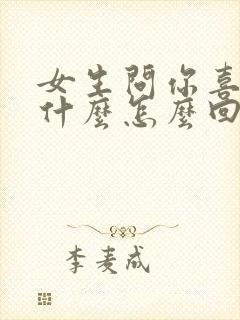 女生問你喜
什麼怎麼回
李麦成